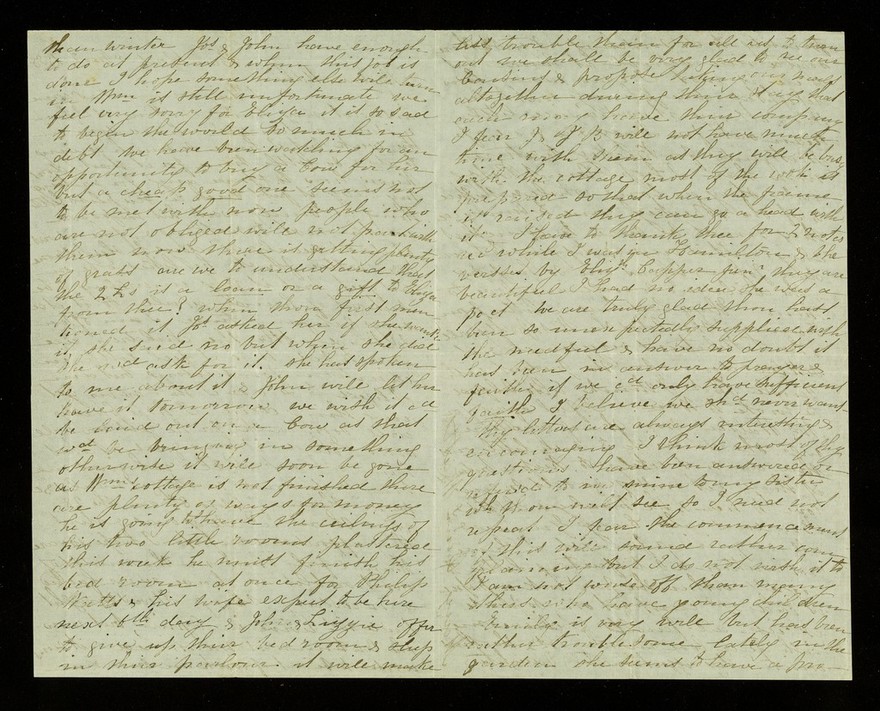 than winter Jos & John have enough
to do at present & when this job is
done I hope something else will turn
in Thos is still unfortunate we
feel very sorry for Eliza it is so sad
to begin the world so much in
debt We have been watching for an
opportunity to buy a Cow for her
but a cheap good one seems not
to be met with now people who
are not obliged will not part with
them now there is getting plenty
of grass are we to understand that
the 2£s is a loan or a gift to Eliza
from thee? when thou first men
tioned it Jos asked her if she wanted
it she said no but when she did
she wd ask for it. she has spoken
to me about it & John will let her
have it tomorrow we wish it cd
be laid out on a Cow as that
wd be bringing in something
otherwise it will soon be gone
as Wms cottage is not finished there
are plenty of ways for money
he is going to have the ceilings of
his two little rooms plastered
this week he must finish his
bed room at once for Philip
Watts & his wife expect to be here
next 6th day & John & Lizzie offer
to give up their bed room & sleep
in their parlour it will make
less trouble them for all is to turn
out we shall be very glad to see our
Cousins & propose
altogether during their stay that
each may have their company
I fear J & B will not have much
time with them as they will be busy
with the cottage most of the work is
prepared so that when the frame
is raised they can go a head with
it I have to thank thee for 2 notes
recd while I was in Hamilton & the
verses by Elizth Capper junr they are
beautiful I had no idea she was a
poet We are truly glad thou hast
been so unexpectedly supplied with
the needful & have no doubt it
has been in answer to prayer &
faith if we cd only have sufficient
faith I believe we shd never want
thy letters are always interesting &
encouraging I think most of thy
questions have been answered or
replied to in mine to my sister
wh thou wilt see so I need not
repeat I fear the commencement
of this will sound rather com
plaining but I do not wish it to
I am not worse off than many
others who have young children
is very well but has been
rather troublesome lately in the
garden she seems to have a pro-